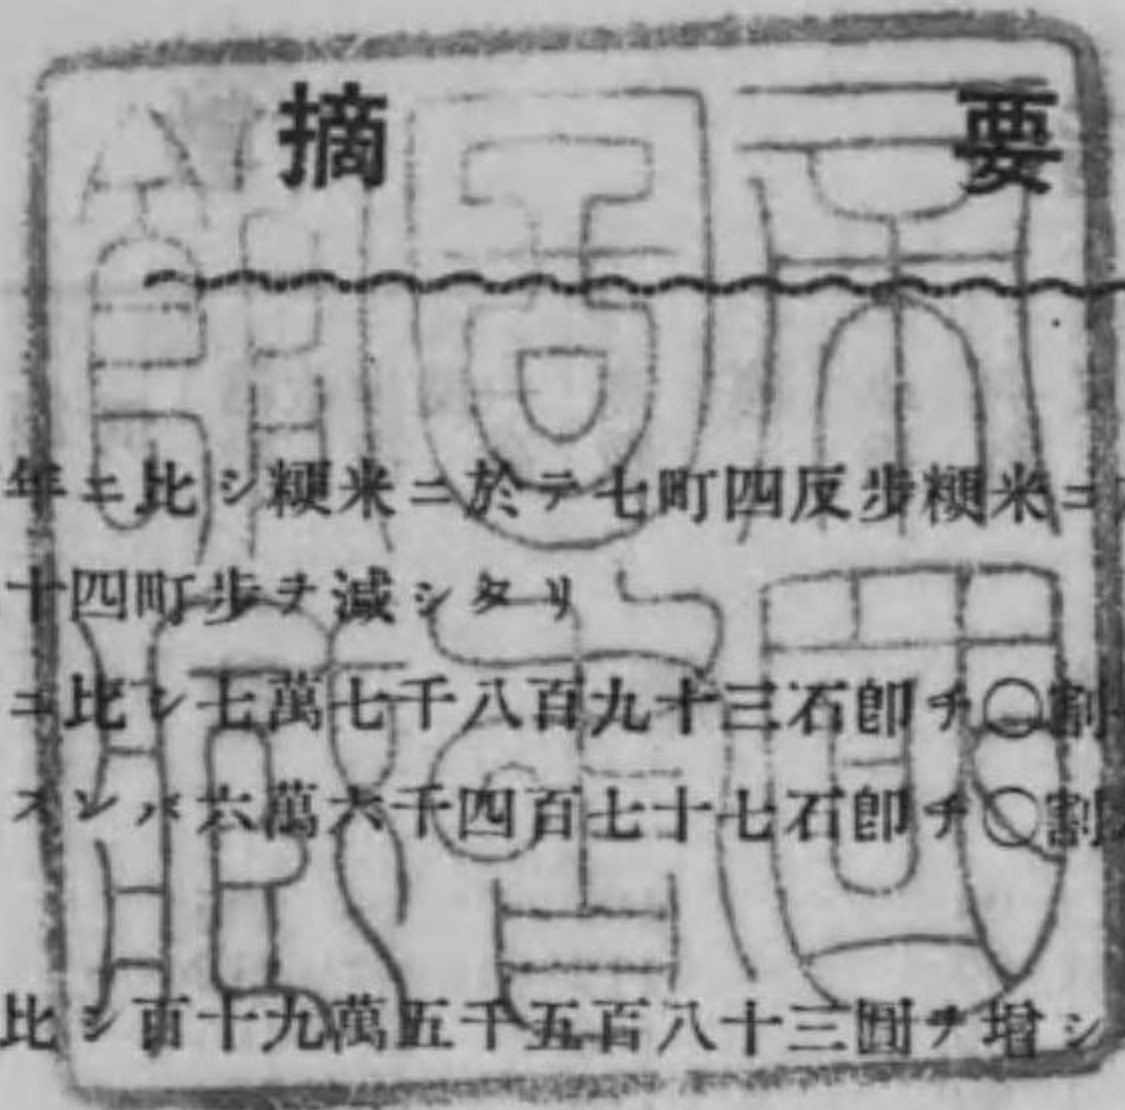 摘要
年ニ比シ粳米ニ於テ七町四反步粳米ニ
十四町步ヲ減シタリ
ニ比シ七萬七千八百九十三石卽チ〇割
スレハ六萬六千四百七十七石卽チ〇割
比シ百十九萬五千五百八十三圓ヲ增シ
帝國
圖書
館藏